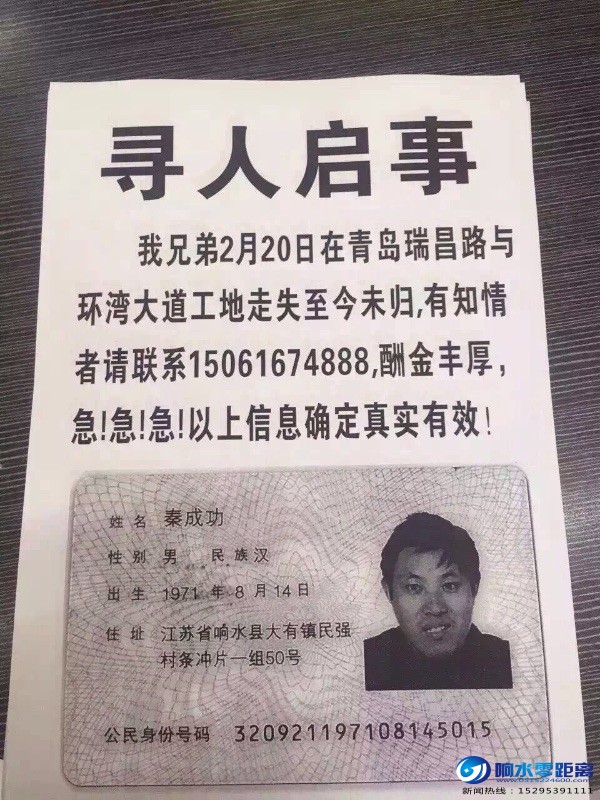 寻人启事
我兄弟2月20日在青岛瑞昌路与
环湾大道工地走失至今未归,有知情
者请联系15061674888,酬金丰厚,
急!急!急!以上信息确定真实有效!
姓名 秦成功
性别 男 民族汉
出生 1971 年 8 月 14 日
住址 江苏省响水县大有镇民强
村条冲片一组50号
公民身份号码 320921197108145015
响水零距离
新闻热线:15295391111